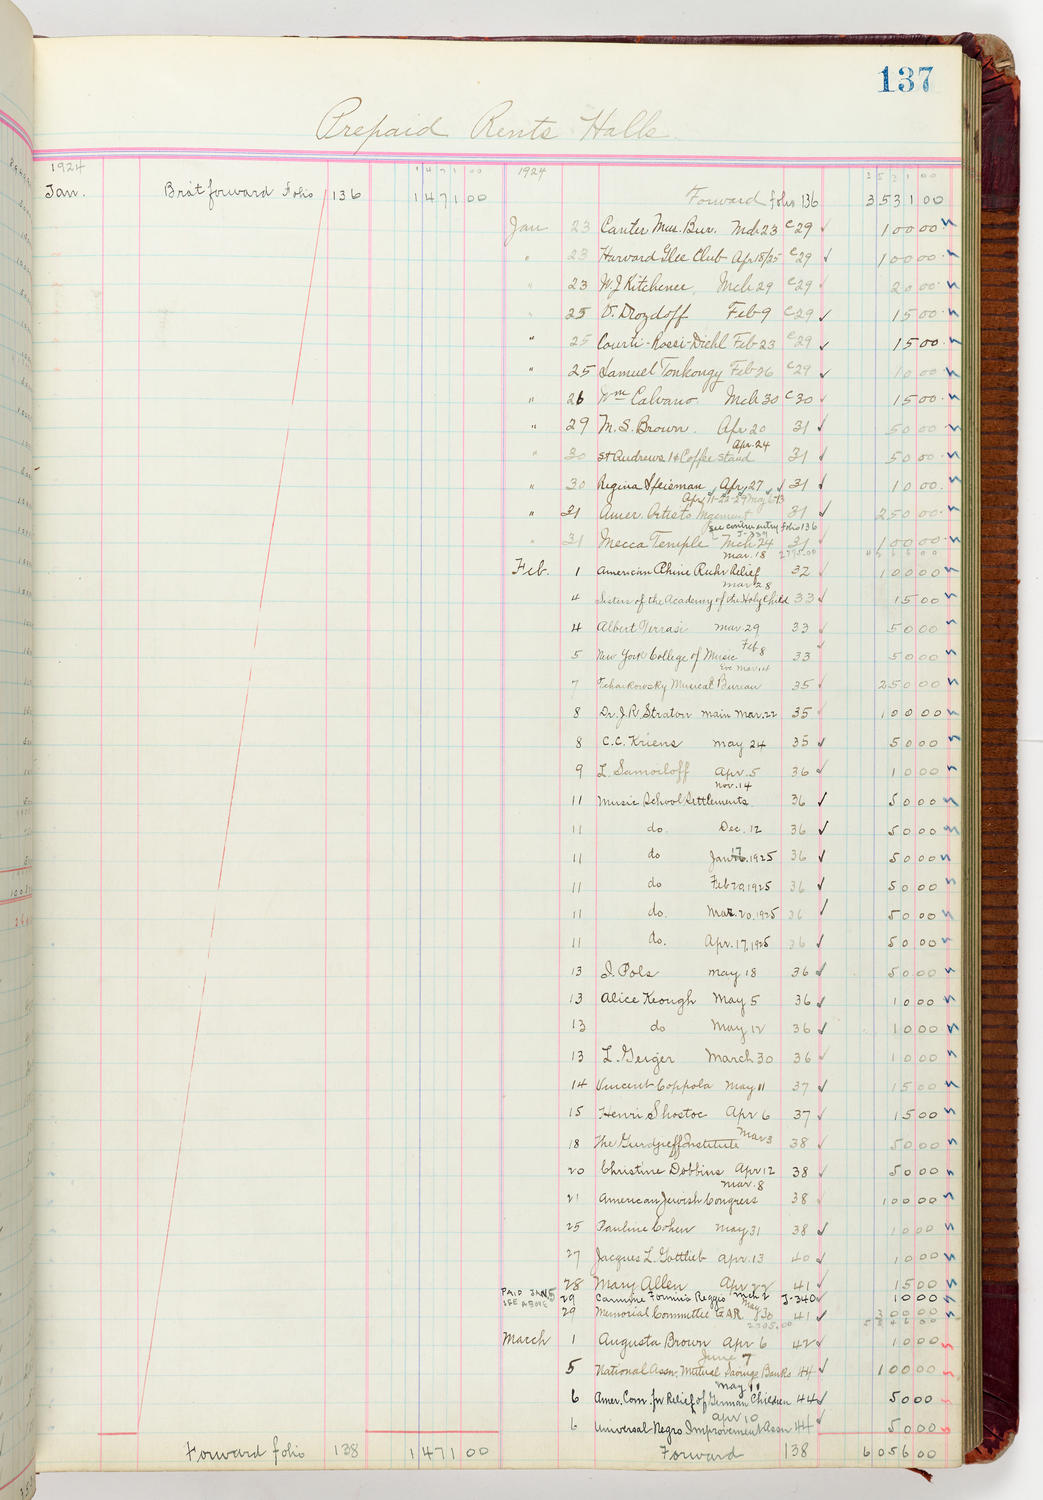 137
Prepaid Rents Halls
1924
1471 00
1924
3531 00
Jan. Bro't forward Folio 136 1471 00
Forward folio 136 3531 00
Jan 23 Canter Mus. Bur. Mch 23 C29 100 00
" 23 Harvard Glee Club Apr 18/25 C29 100 00
" 23 W.J Kitchener, Mch 29 C29 20 00
" 25 V. Drozdoff Feb 9 C29 15 00
" 25 Courti-Rossi-Diehl Feb 23 C29 15 00
" 25 Samuel Tonkongy Feb 26 C29 10 00
" 26 Wm Calvano Mch 30 C30 15 00
" 29 M. S. Brown. Apr 20 31 50 00
Apr. 24
" 30 St Andrews 1¢ Coffee Stand 31 50 00
" 30 Regina Speisman Apr, 27 31 10 00
" 31 Amer. Artists 31 250 00
see contra entry folio 136
" 31 Mecca Temple Mch 24 31 100 00
Mar. 18 2795.00
Feb. 1 American Rhine Ruhr Relief 32 100 00
Mar 28
" 4 Sisters of the Academy of the Holy Child 33 15 00
4 Albert Terrasi Mar. 29 33 50 00
Feb 8
5 New York College of Music 33 50 00
Eve Mar. 14
7 Tchaikowsky Musical Bureau 35 250 00
8 Dr. J. R. Straton main Mar. 22 35 100 00
8 C. C. Kriens May 24 35 50 00
9 L. Samoiloff Apr. 5 36 10 00
Nov. 14
11 Music School Settlements 36 50 00
11 do. Dec. 12 36 50 00
11 do Jan 16. 1925 36 50 00
11 do Feb 20, 1925 36 50 00
11 do. Mar. 20, 1925 36 50 00
11 do. Apr. 17, 1925 36 50 00
13 I. Pols May 18 36 50 00
13 Alice Keough May 5 36 10 00
13 do May 12 36 10 00
13 L. Geiger March 30 36 10 00
14 Vincent Coppola May 11 37 15 00
15 Henri Shostac Apr 6 37 15 00
18 The Gurdjieff Institute Mar 3 38 50 00
20 Christine Dobbins Apr 12 38 50 00
Mar. 8
21 American Jewish Congress 38 100 00
25 Pauline Cohen May 31 38 10 00
27 Jacques L. Gottlieb Apr. 13 40 10 00
28 Mary Allen Apr 22 41 15 00
PAID JAN 5 29 Carmine Fornnis Reggio Mch 2 J-340 10 00
SEE ABOVE 29 Memorial Committee GAR May 30 41
2305.00
March 1 Augusta Brown Apr 6 42 10 00
June 7
5 National Assn. Mutual Savings Banks 44 100 00
May 11
6 Amer. Com. for Relief of German Children 44 50 00
Apr 10
6 Universal Negro Improvement Assn 44 50 00
Forward folio 138 1471 00
Forward 138 6056 00